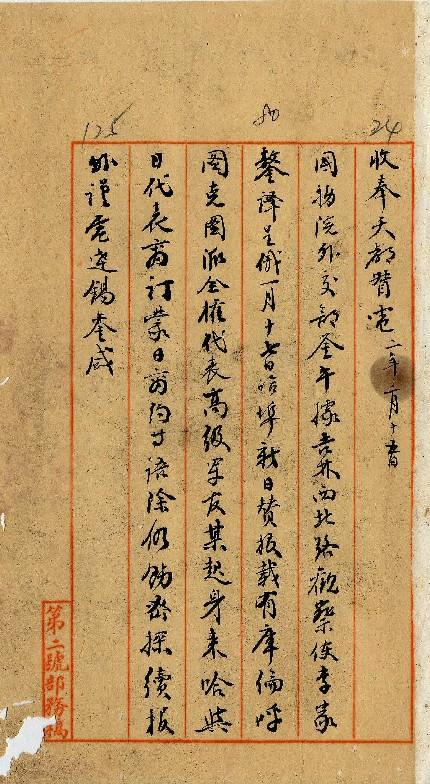 24
80
125
收奉天都督電 二年
國務院外交部鑒午據吉林西北路觀察使李家
鏊譯呈俄一月十 日哈埠新日贊报載有庫倫呼
圖克圖派全權代表高級軍友某起身來哈與
日代表商訂蒙日商約等語除仍飭密探續报
外謹電達錫鑾咸
第二號部務稿